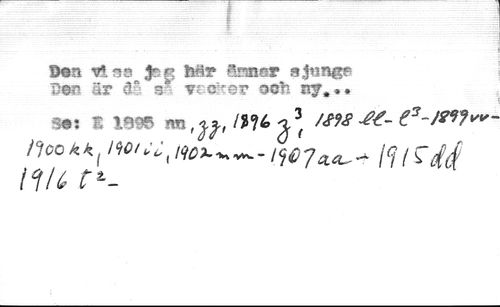 Den visa jag här ämnar sjunga
Den är då så vacker och ny...
Se: E 1895 nn, zz, 1896 z³, 1898 ll - l³ - 1899 vv -
1900 kk, 1901 ii, 1902 mm - 1907 aa - 1915 dd
1916 t² -